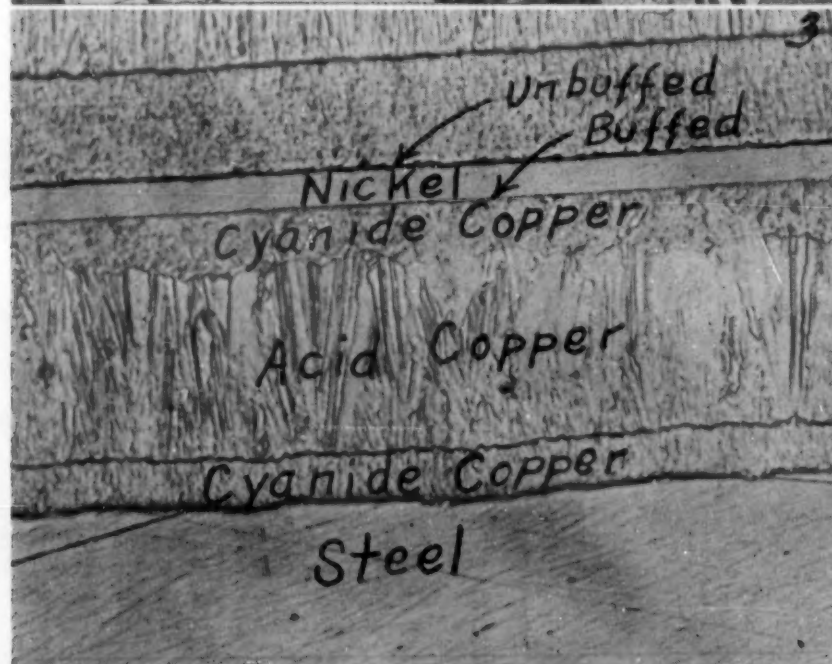 3
Unbuffed
Buffed
Nickel
Cyanide Copper
Acid Copper
Cyanide Copper
Steel